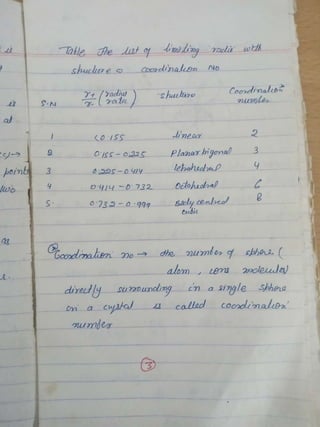 Table The list of limiting radii with
structure & coordination No
S.N r+/r- (radius ratio) structure Coordination number
1 <0.155 linear 2
2 0.155-0.225 Planar trigonal 3
3 0.225-0.414 tetrahedral 4
4 0.414-0.732 Octahedral 6
5. 0.732-0.999 body centred cubic 8
Coordination no → the number of sphere (
atom, ions molecules)
directly surrounding in a single sphere
on a crystal is called coordination
number
3